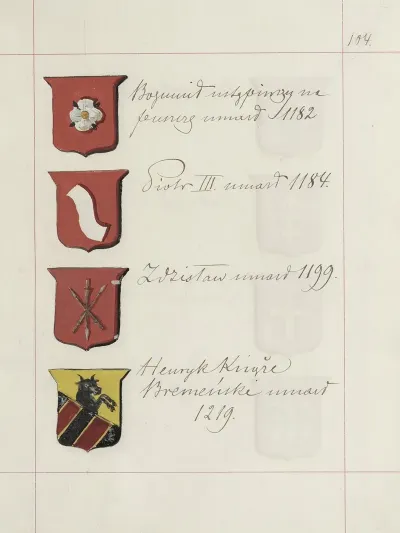 194.
Bogumił ustąpiwszy na
puszczę umarł 1182
Piotr III. umarł 1184.
Zdzisław umarł 1199.
Henryk Kniże
Bremeński umarł
1219.